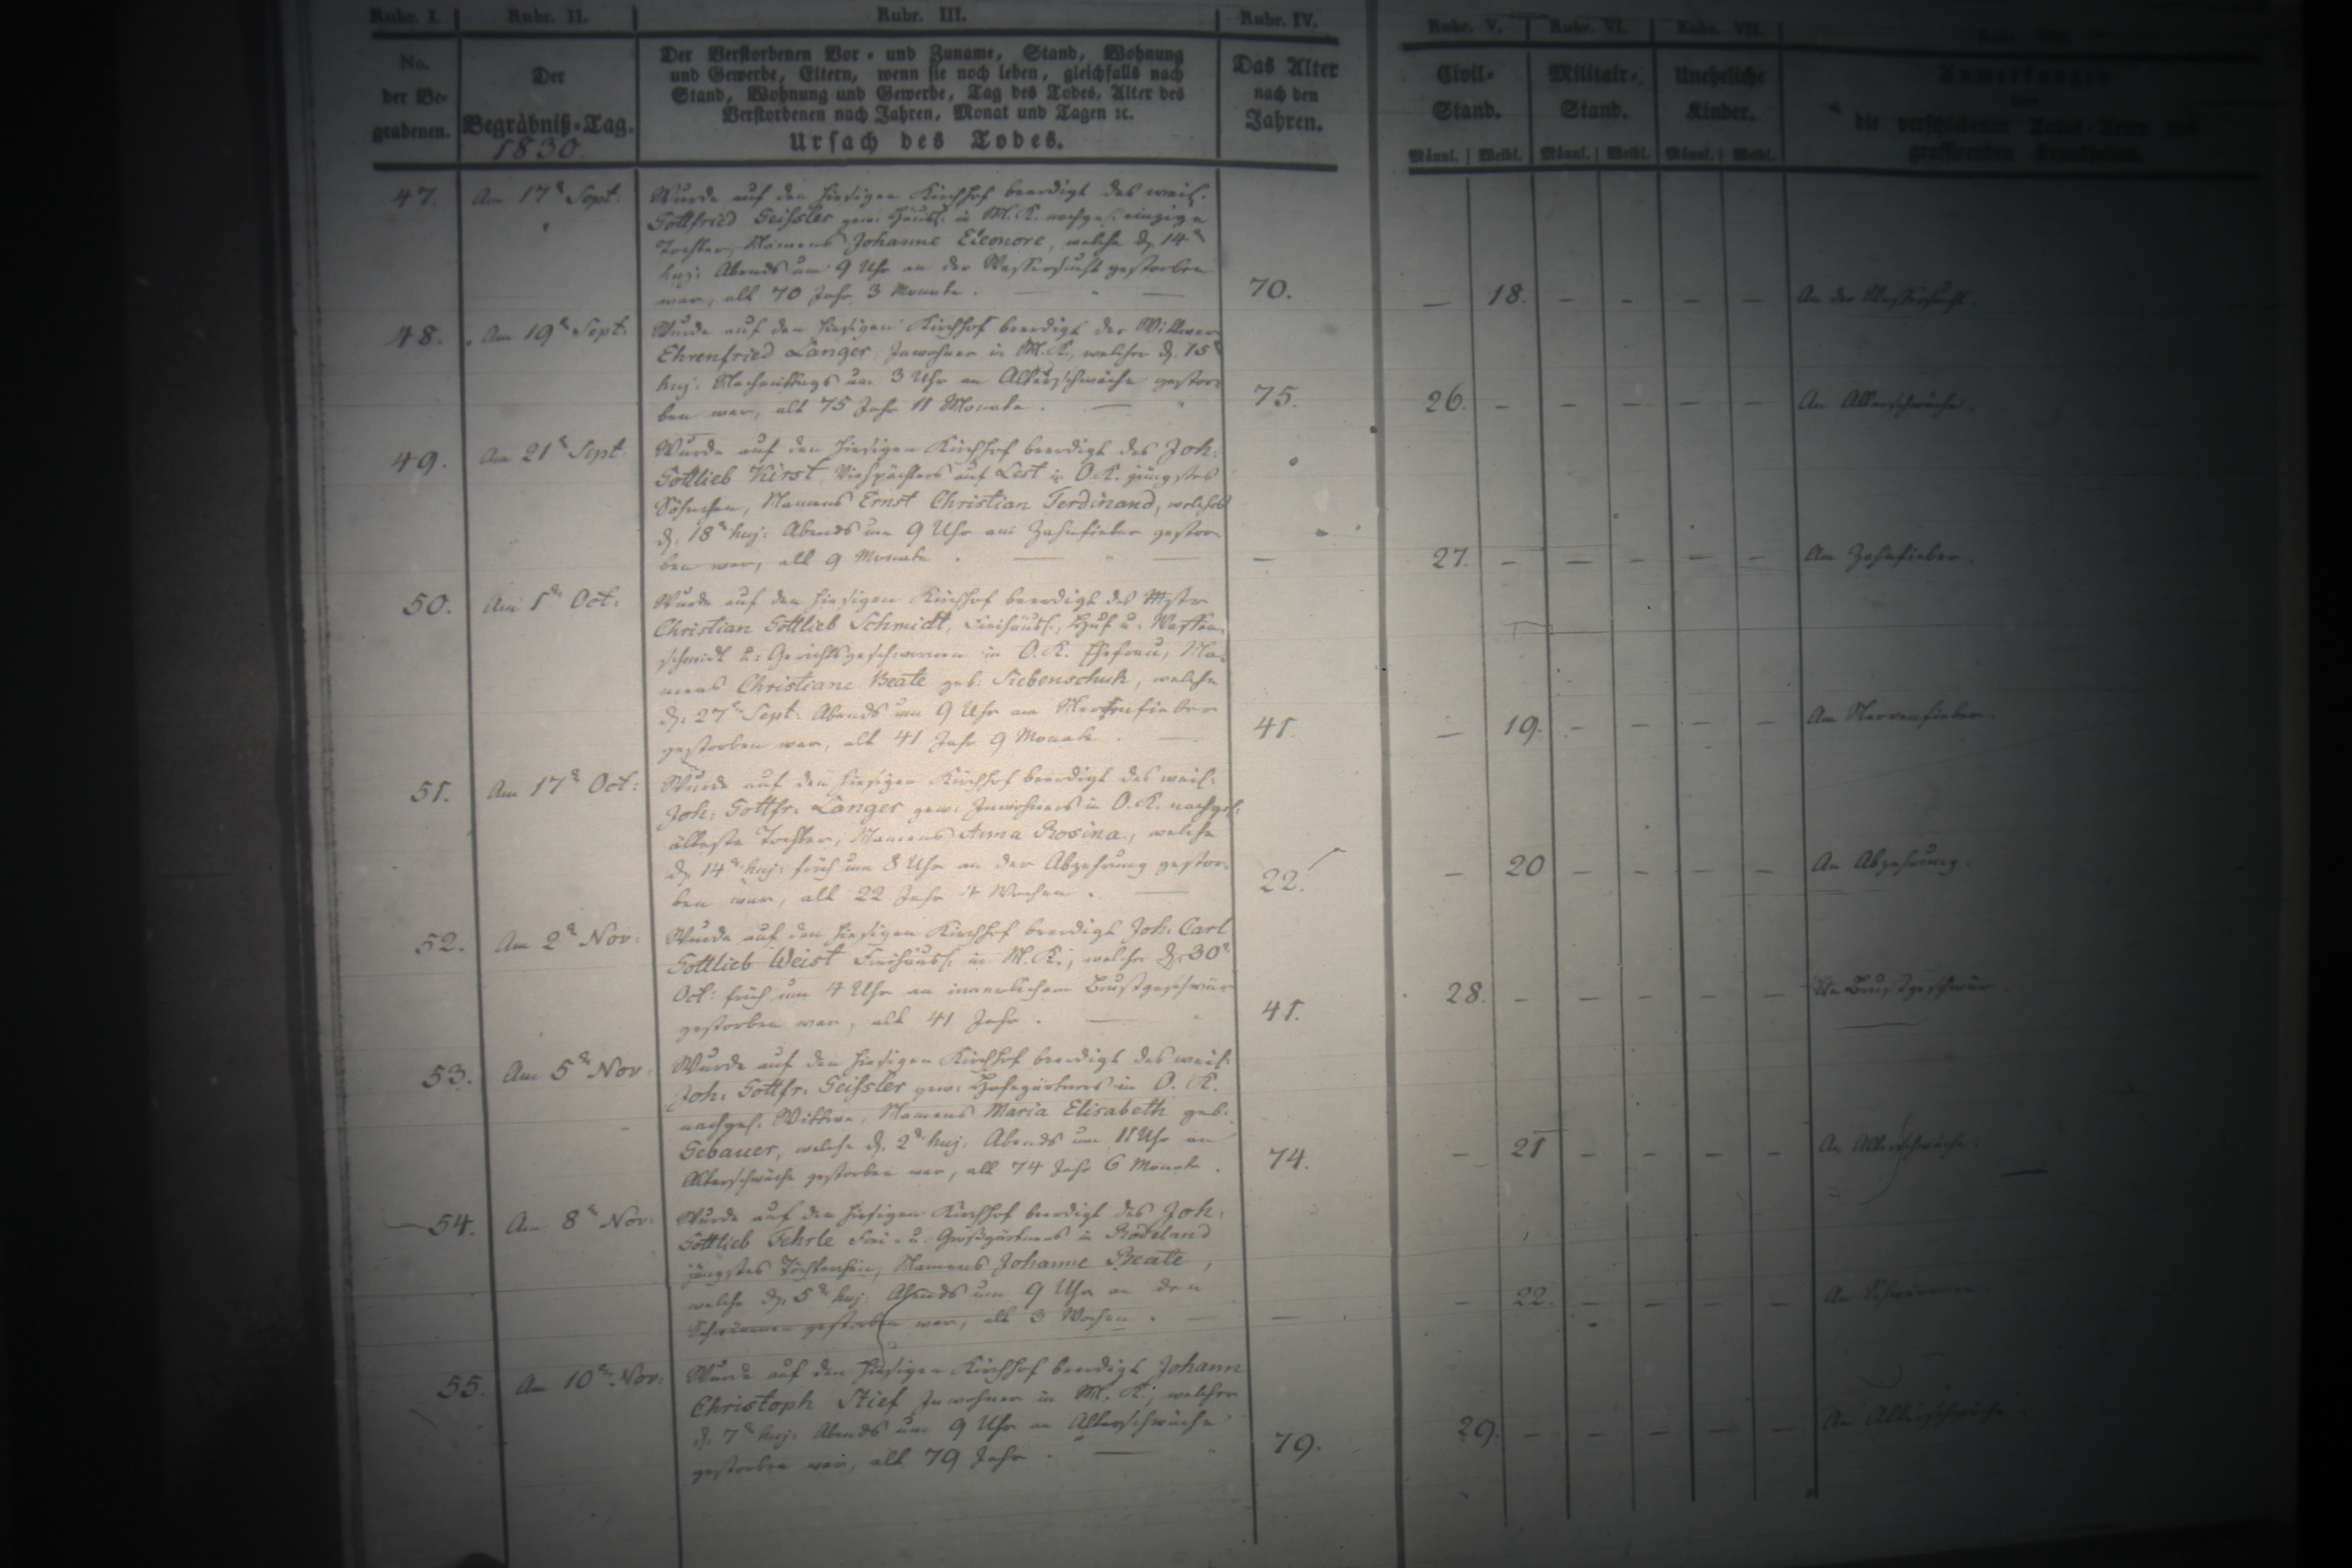 Rubr. I. Rubr. II. Rubr. III. Rubr. IV. Rubr. V. Rubr. VI. Rubr. VII.
No. der Be= grabenen.
Der Begräbniß=Tag.
1830.
Der Verstorbenen Vor= und Zuname, Stand, Wohnung
und Gewerbe, Eltern, wenn sie noch leben, gleichfalls nach
Stand, Wohnung und Gewerbe, Tag des Todes, Alter des
Verstorbenen nach Jahren, Monat und Tagen ꝛc.
Ursach des Todes.
Das Alter
nach den
Jahren.
Civil=
Stand.
Militair=
Stand.
Uneheliche
Kinder.
Anmerkungen
über
die verschiedenen Todes=Arten und
grassirenden Krankheiten.
Männl. Weibl. Männl. Weibl. Männl. Weibl.
47. Am 17 Sept: Wurde auf den hiesigen Kirchhof beerdigt des weil.
Gottfried Geißler gew: Häusl: in M. K. nachgel. einzige
Tochter, Namens Johanne Eleonore, welche d. 14
huj: Abends um 9 Uhr an der Wassersucht gestorben
war, alt 70 Jahr 3 Monate. 70. — 18. — — — — An der Wassersucht.
48. Am 19 Sept: Wurde auf den hiesigen Kirchhof beerdigt der Wittwer
Ehrenfried Langer, Inwohner in M. K., welcher d. 15
huj: Nachmittags um 3 Uhr an Altersschwäche gestor=
ben war, alt 75 Jahr 11 Monate. 75. 26. — — — — — An Altersschwäche.
49. Am 21 Sept: Wurde auf den hiesigen Kirchhof beerdigt des Joh:
Gottlieb Kirst, Viehpächters auf Lest in O. K. jüngstes
Söhnchen, Namens Ernst Christian Ferdinand, welches
d. 18 huj: Abends um 9 Uhr am Zahnfieber gestor=
ben war, alt 9 Monate. — 27. — — — — — Am Zahnfieber.
50. Am 1 Oct: Wurde auf den hiesigen Kirchhof beerdigt des Mstr
Christian Gottlieb Schmidt, Freihäusl:, Huf u. Waffen=
schmidt u: Gerichtsgeschwornen in O. K. Ehefrau, Na=
mens Christiane Beate geb: Siebenschuh, welche
d. 27 Sept: Abends um 9 Uhr am Nervenfieber
gestorben war, alt 41 Jahr 9 Monate. 41. — 19. — — — — Am Nervenfieber.
51. Am 17 Oct: Wurde auf den hiesigen Kirchhof beerdigt des weil:
Joh: Gottfr: Langer gew: Inwohners in O. K. nachgel:
älteste Tochter, Namens Anna Rosina, welche
d. 14 huj: früh um 8 Uhr an der Abzehrung gestor=
ben war, alt 22 Jahr 4 Wochen. 22. — 20 — — — — An Abzehrung.
52. Am 2 Nov: Wurde auf den hiesigen Kirchhof beerdigt Joh: Carl
Gottlieb Weist Freihäusl: in M. K., welcher d. 30
Oct: früh um 4 Uhr an innerlichem Brustgeschwür
gestorben war, alt 41 Jahr. 41. 28. — — — — — An Brustgeschwür.
53. Am 5 Nov: Wurde auf den hiesigen Kirchhof beerdigt des weil:
Joh: Gottfr: Geißler gew: Hofegärtners in O. K.
nachgel. Wittwe, Namens Maria Elisabeth geb:
Gebauer, welche d. 2 huj: Abends um 11 Uhr an
Altersschwäche gestorben war, alt 74 Jahr 6 Monate. 74. — 21 — — — — An Altersschwäche.
54. Am 8 Nov: Wurde auf den hiesigen Kirchhof beerdigt des Joh:
Gottlieb Fehrle Frei= u: Großgärtners in Rodeland
jüngstes Töchterchen, Namens Johanne Beate,
welche d. 5 huj: Abends um 9 Uhr an den
Schwämmen gestorben war, alt 3 Wochen. — — 22. — — — — An Schwämmen
55. Am 10 Nov: Wurde auf den hiesigen Kirchhof beerdigt Johann
Christoph Stief Inwohner in M. K., welcher
d. 7 huj: Abends um 9 Uhr an Altersschwäche
gestorben war, alt 79 Jahr. 79. 29. — — — — — An Altersschwäche.